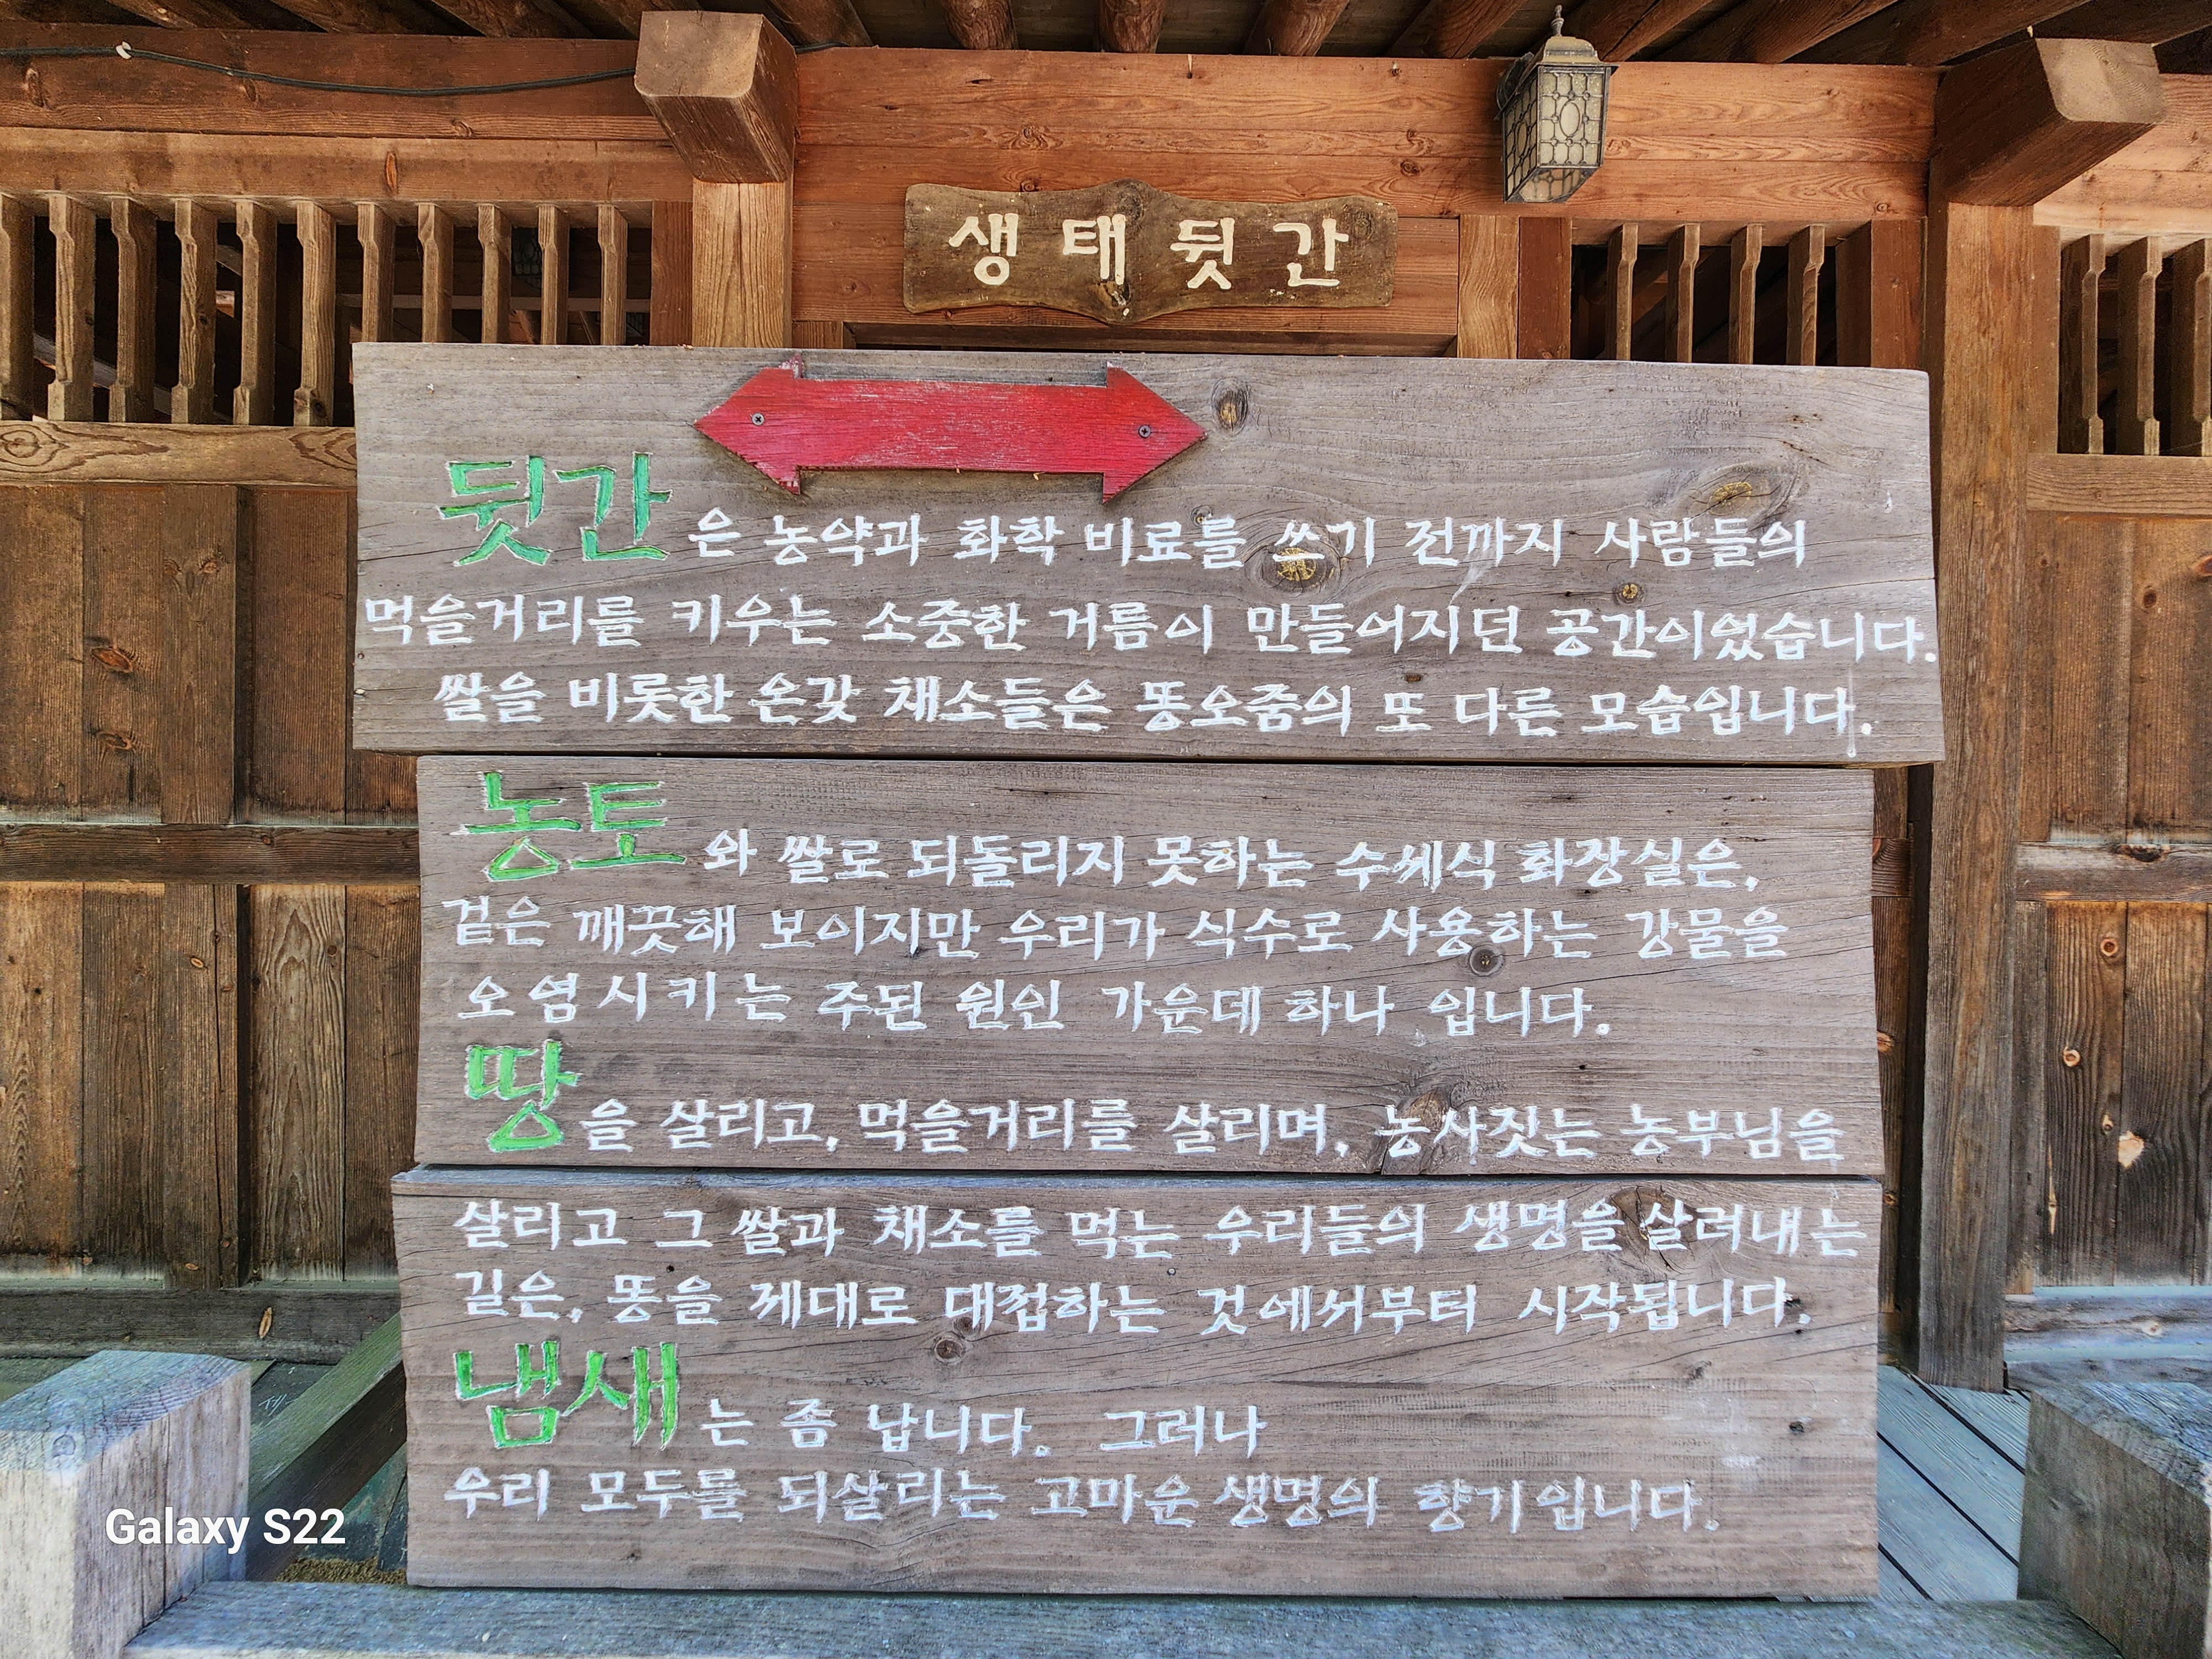 생태뒷간
뒷간은 농약과 화학 비료를 쓰기 전까지 사람들의
먹을거리를 키우는 소중한 거름이 만들어지던 공간이었습니다.
쌀을 비롯한 온갖 채소들은 똥오줌의 또 다른 모습입니다.
농토와 쌀로 되돌리지 못하는 수세식 화장실은,
겉은 깨끗해 보이지만 우리가 식수로 사용하는 강물을
오염시키는 주된 원인 가운데 하나 입니다.
땅을 살리고, 먹을거리를 살리며, 농사짓는 농부님을
살리고 그 쌀과 채소를 먹는 우리들의 생명을 살려내는
길은, 똥을 제대로 대접하는 것에서부터 시작됩니다.
냄새는 좀 납니다. 그러나
우리 모두를 되살리는 고마운 생명의 향기입니다.
Galaxy S22